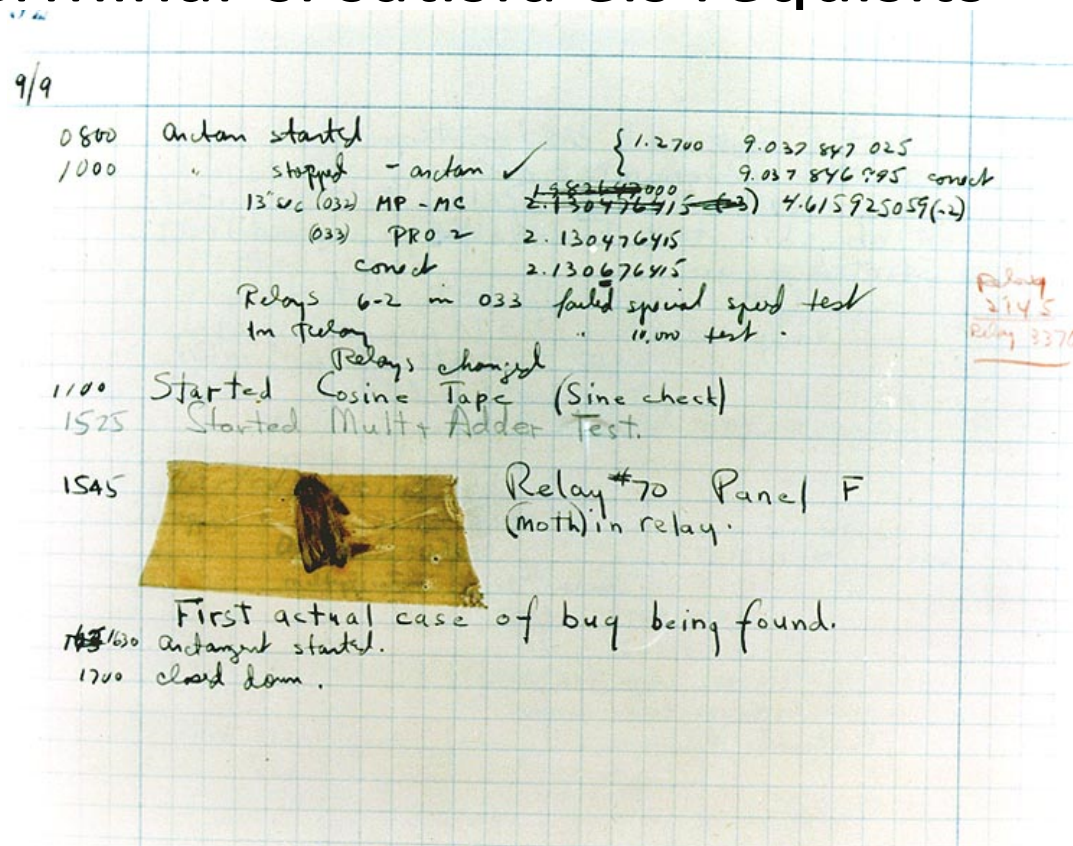 9/9
0800 arctan started { 1.2700 9.037 847 025
1000 " stopped - arctan ✓ 9.037 846 995 conect
13"sec (032) MP - MC 1.982647000 2.130476415 (-3) 4.615925059(-2)
(033) PRO 2 2.130476415
conect 2.130676415
Relays 6-2 in 033 failed special speed test
In Relay " 10,000 test.
Relay
2145
Relay 3370
Relays changed
1100 Started Cosine Tape (Sine check)
1525 Started Mult+ Adder Test.
1545 Relay #70 Panel F
(moth) in relay.
First actual case of bug being found.
1630 arctangent started.
1700 closed down.